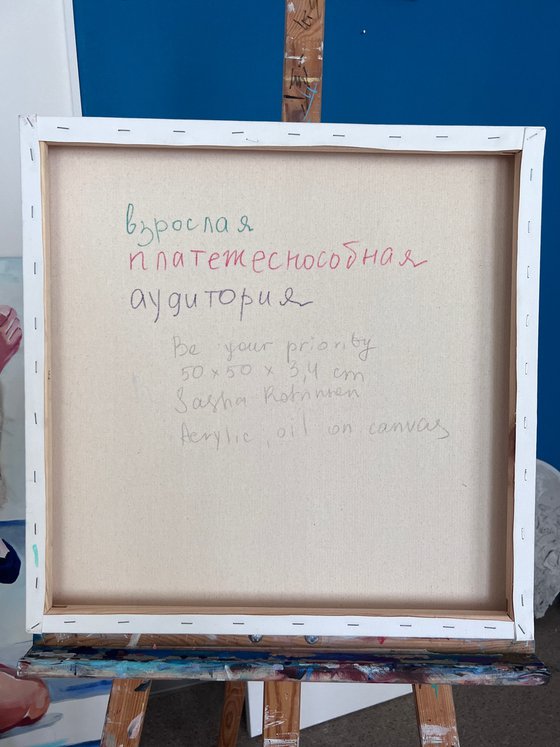 взрослая
платежеспособная
аудитория
Be your priority
50 x 50 x 3,4 cm
Sasha
Acrylic, oil on canvas